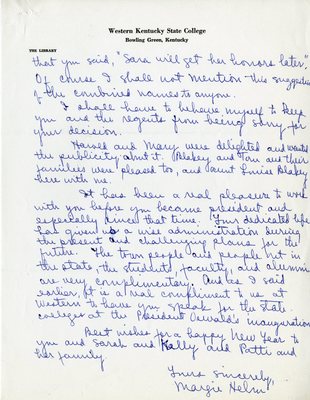 Western Kentucky State College
Bowling Green, Kentucky
THE LIBRARY
that you said, "Sara will get her honors later."
Of course I shall not mention this suggestion
of the combined names to anyone.
I shall have to behave myself to keep
you and the regents from being sorry for
your decision.
Harved and Mary were delighted and wanted
the publicity about it. Blakey and Tom and their
families were pleased too, and Aunt Louise Blakey
here with me.
It has been a real pleasure to work
with you before you became president and
especially since that time. Your dedicated life
has given us a wise administration during
the present and challenging plans for the
future. The town people and people out in
the state, the students, faculty, and alumni
are very complimentary. And as I said
earlier, it is a real compliment to us at
Western to have you speak for the State
colleges at the President Oswald's inauguration.
Best wishes for a happy New Year to
you and Sarah and Kelly and Patti and
her family.
Yours sincerely,
Margie Helm